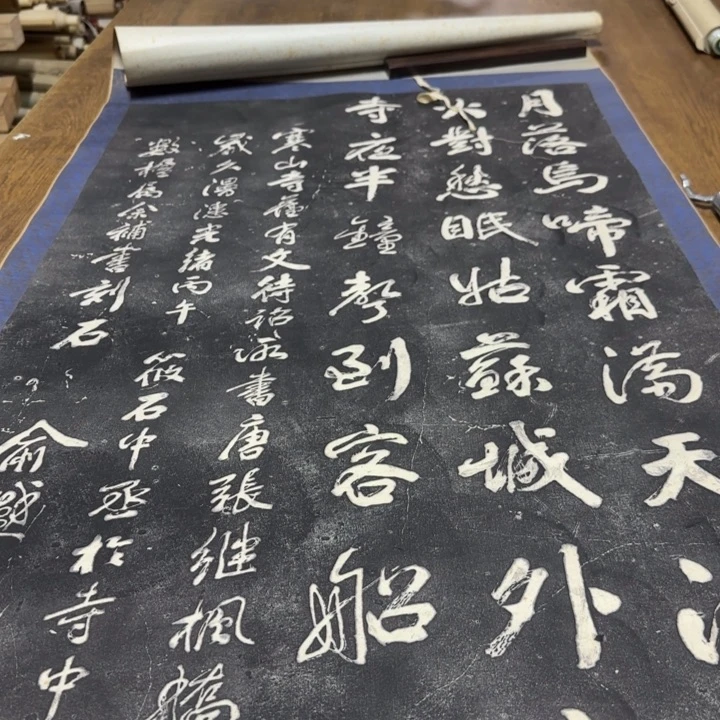 月落烏啼霜滿天
火對愁眠姑蘇城外
寺夜半鐘聲到客船
寒山寺舊有文待詔所書唐張繼楓橋
歲久漫漶光緒丙午筱石中丞於寺中
數楹屬余補書刻石
俞樾